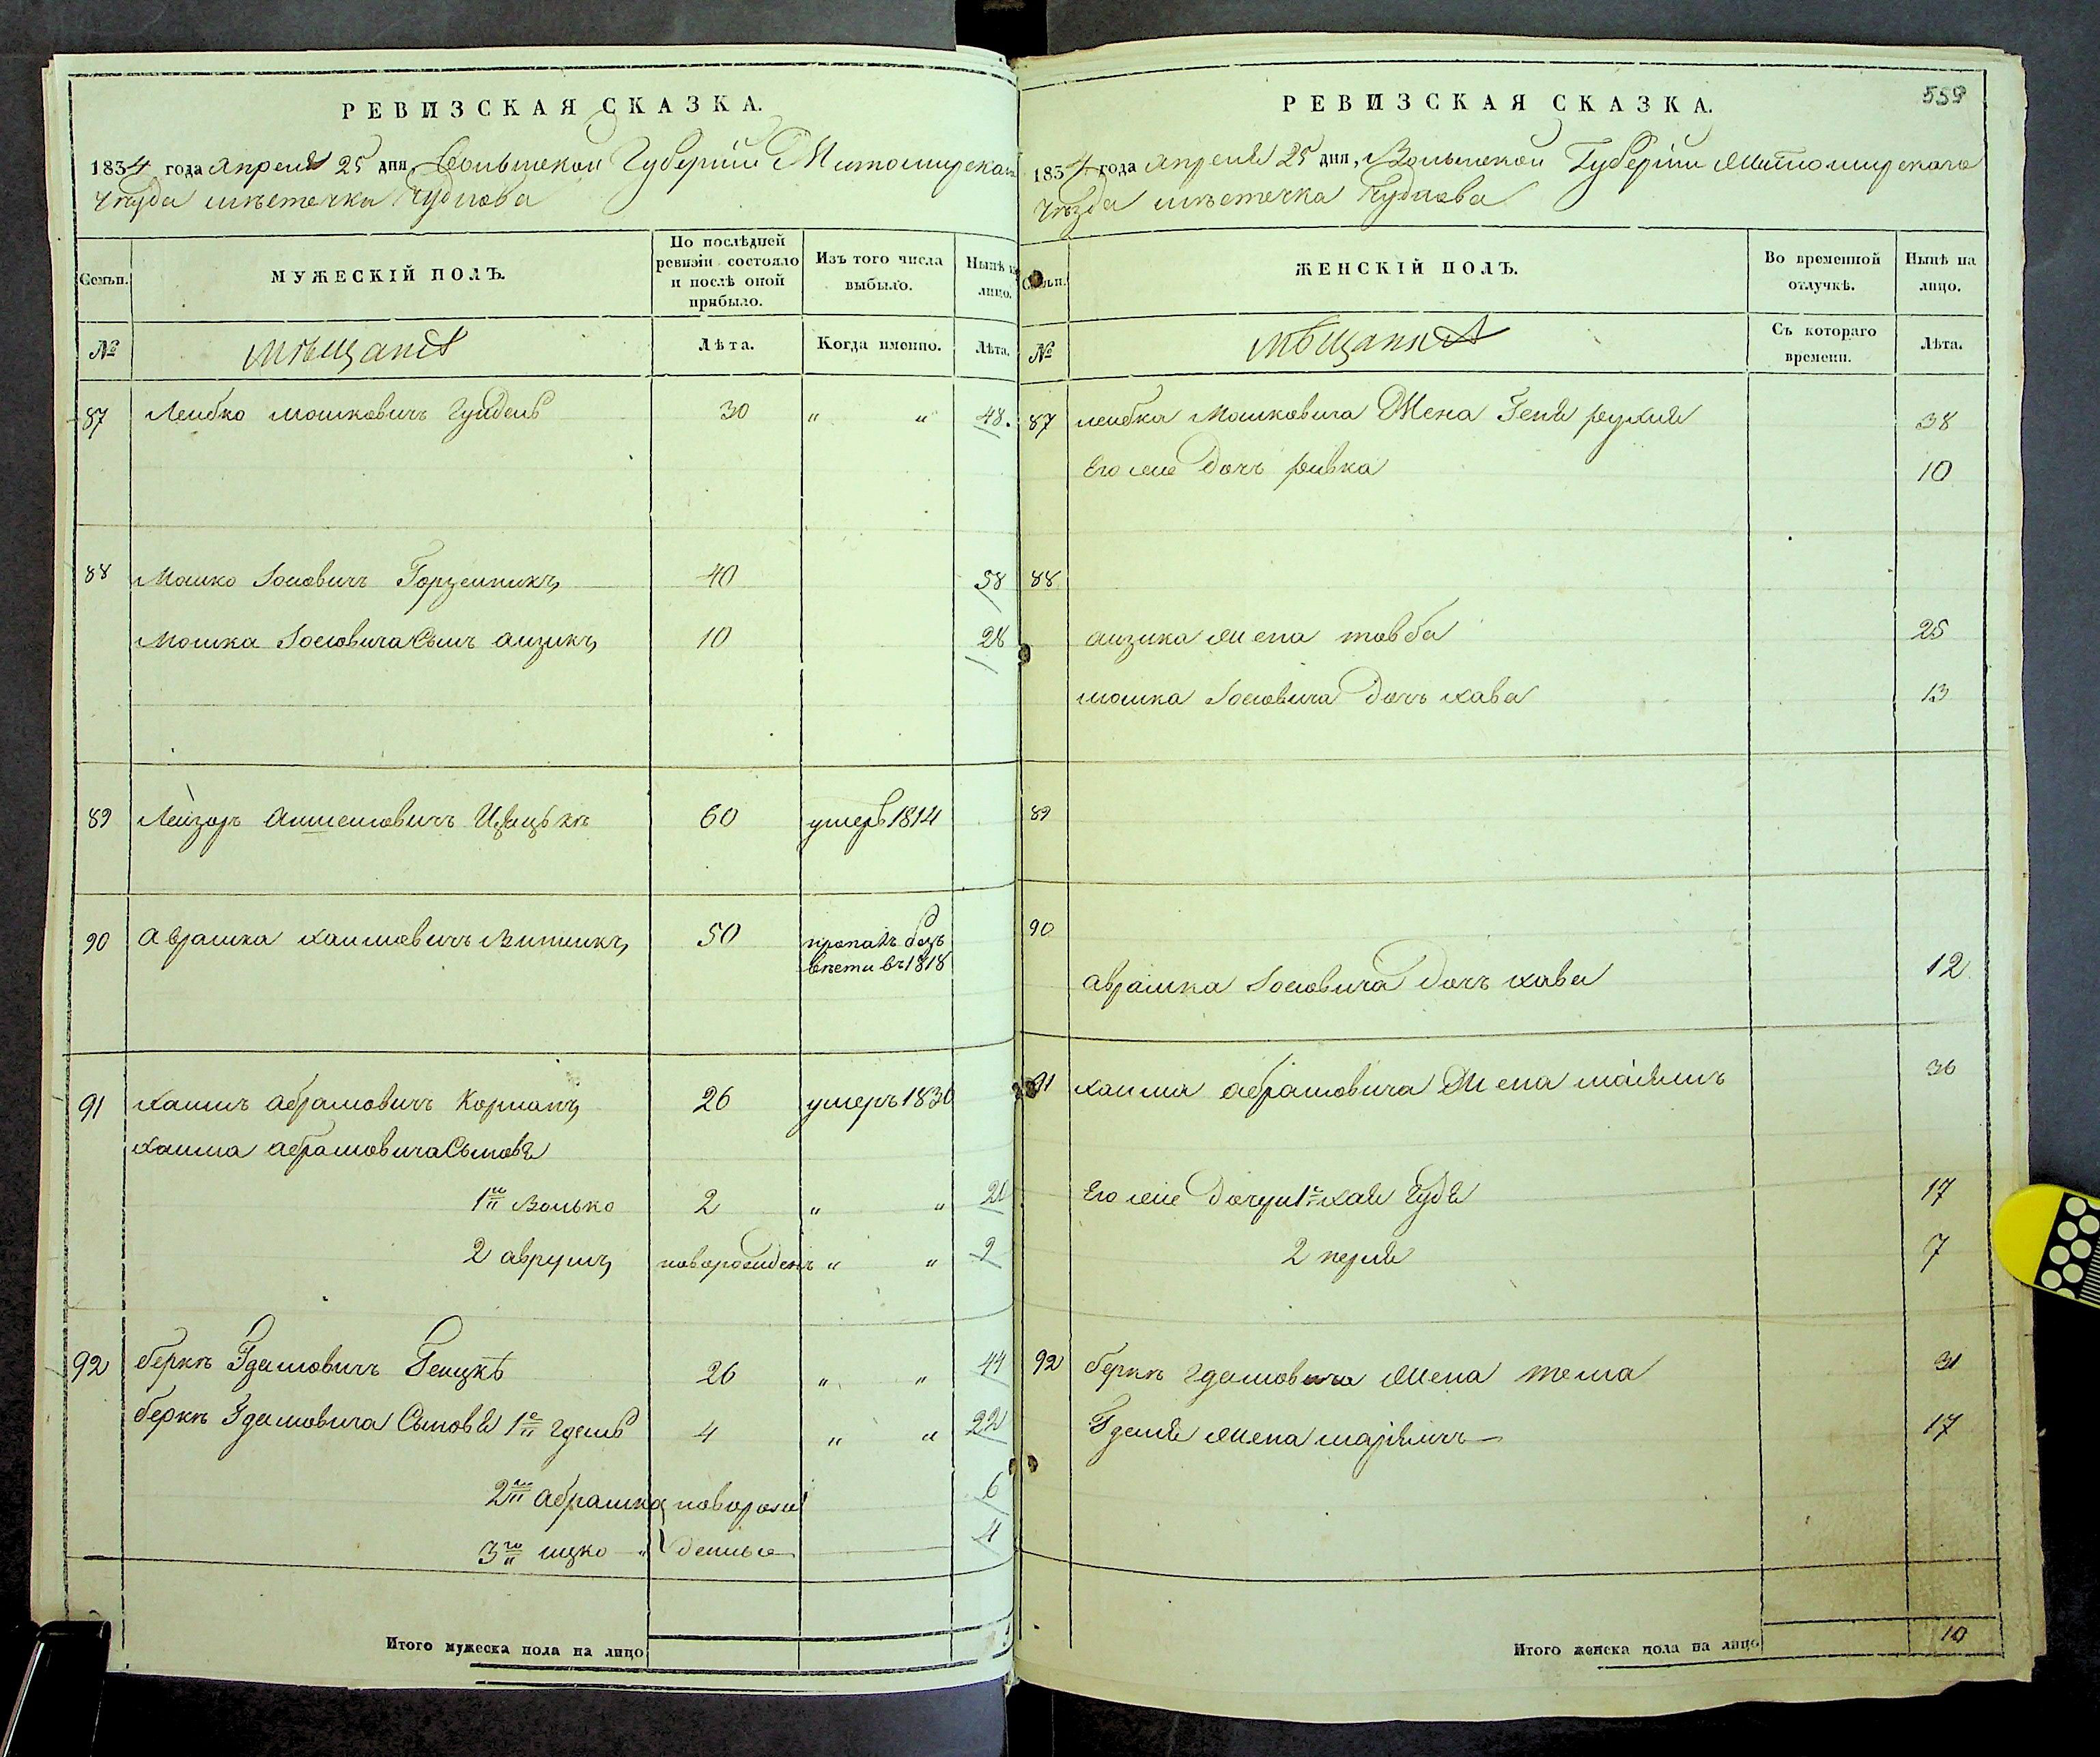 РЕВИЗСКАЯ СКАЗКА.
1834 года апреля 25 дня, Волынской Губерніи Житомирскаго
уѣзда мѣстечка Чуднова
Семьи.
МУЖЕСКІЙ ПОЛЪ.
По послѣдней ревизіи состояло и послѣ оной прибыло.
Изъ того числа выбыло.
Нынѣ на лицо.
№
мѣщанѣ
Лѣта.
Когда именно.
Лѣта.
87 Лейбко Мошковичъ 30 " " 48.
88 Мошко Іосіовичъ 40 58
Мошка Іосіовича Сынъ аизикъ 10 28
89 Лейзоръ 60 умеръ 1814
90 Аврамка хаимовичъ 50 пропалъ безъ
вѣсти въ 1818
91 хаимъ абрамовичъ Корманъ 26 умеръ 1830
хаима абрамовича Сыновя
1й Волько 2 " " 20
2 аврумъ новорожденъ " " 2
92 беркъ Здамовичъ 26 " " 44
беркъ Здамовича Сыновя 1й 4 " " 22
2й абрамка новорож 6
3й ицко " денные 4
Итого мужеска пола на лицо
РЕВИЗСКАЯ СКАЗКА.
559
1834 года апреля 25 дня, Волынской Губерніи Житомирскаго
уѣзда мѣстечка Чуднова
Семьи.
ЖЕНСКІЙ ПОЛЪ.
Во временной отлучкѣ.
Нынѣ на лицо.
№
мѣщанѣ
Съ котораго времени.
Лѣта.
87 лейбка Мошковича Жена Геня рухля 38
Его же Дочъ ривка 10
88
аизика жена товба 25
мошка Іосіовича Дочъ хава 13
89
90
аврамка Іосіовича Дочъ хава 12
91 хаима абрамовича Жена 36
Его же Дочери 1я хая 17
2 перля 7
92 беркъ жена 31
жена 17
Итого женска пола на лицо 10